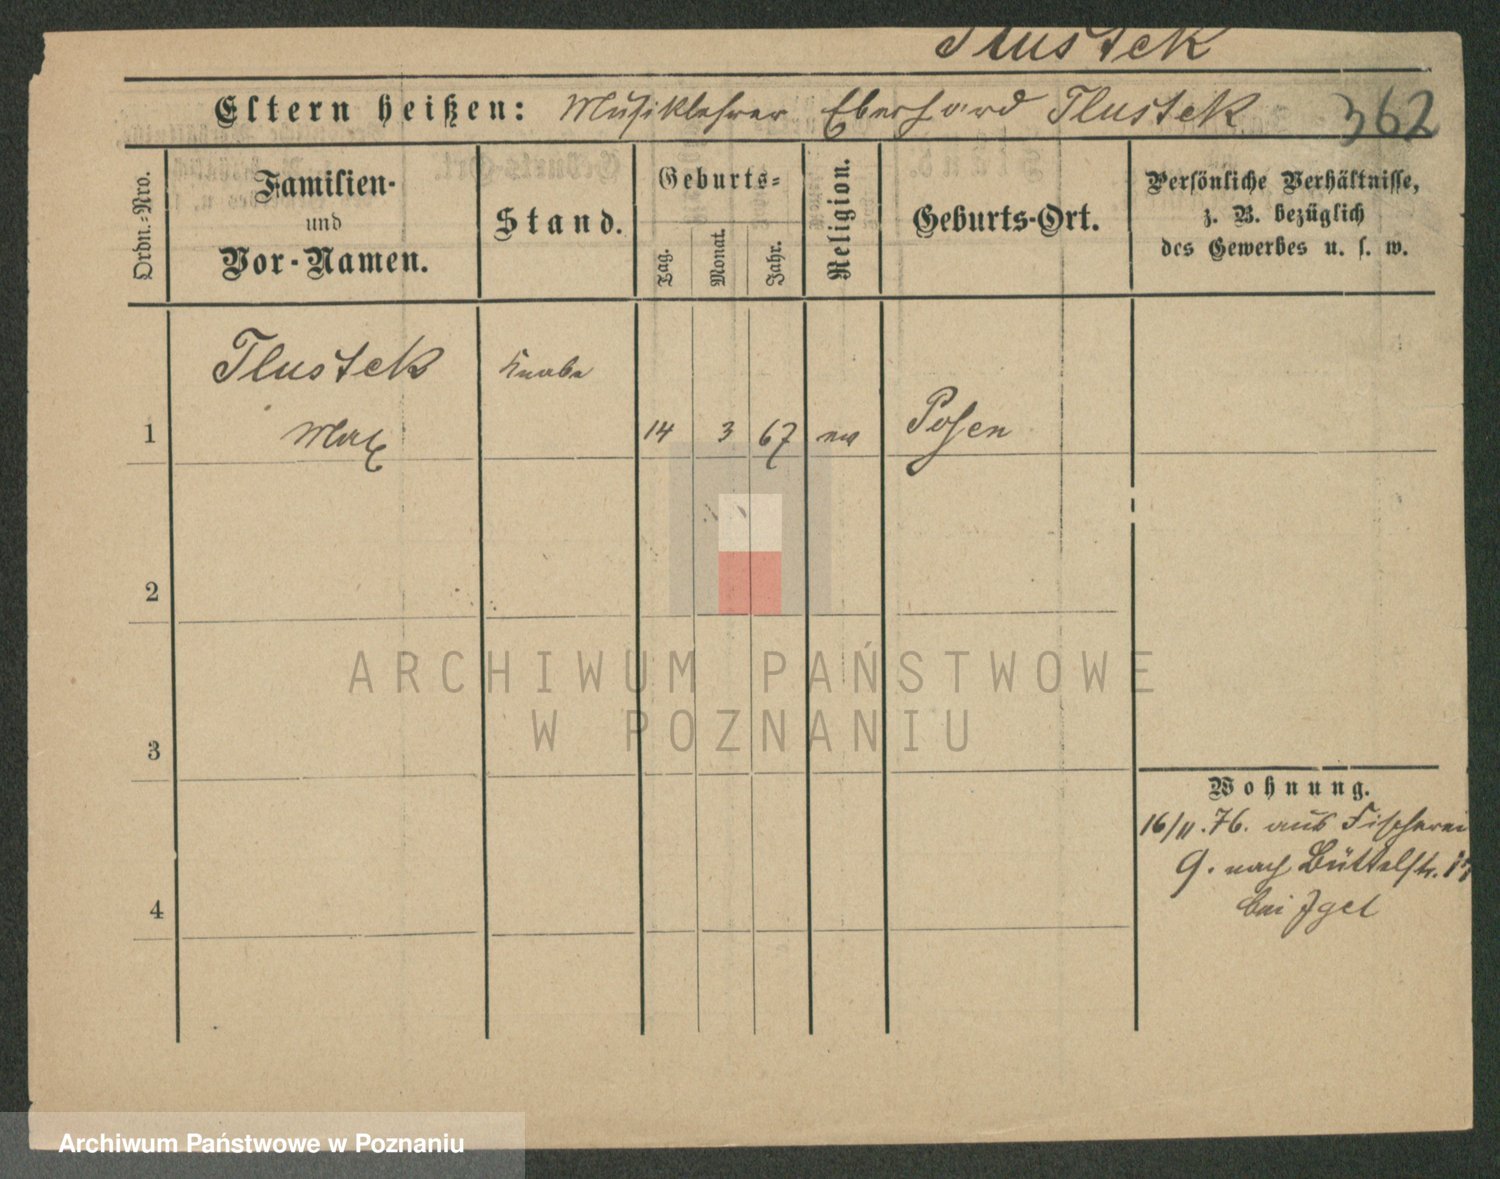 Tlustek
Eltern heißen: Musiklehrer Eberhard Tlustek
362
Ordn.-Nro.
Familien-
und
Vor-Namen.
Stand.
Geburts-
Tag.
Monat.
Jahr.
Religion.
Geburts-Ort.
Persönliche Verhältnisse,
z. B. bezüglich
des Gewerbes u. s. w.
Tlustek Knabe
1 Max 14 3 67 Posen
2
3
4
Wohnung.
16/11.76. aus Fischerei
9. nach Büttelstr. 17
bei Igel
ARCHIWUM PAŃSTWOWE
W POZNANIU
Archiwum Państwowe w Poznaniu